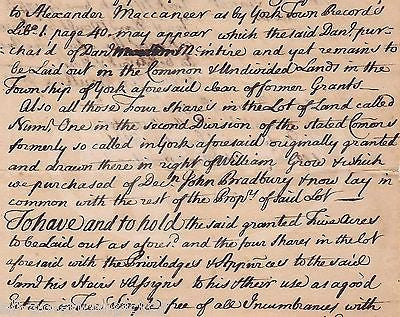 to Alexander Maccaneer as by York Town Records
Lib.o 1. page 40. may appear which the said Dan.l pur-
chas'd of Dan.l M.cintire and yet remains to
be Laid out in the Common & Undivided Lands in the
Township of York aforesaid clear of former Grants
Also all those four Share's in the Lot of Land called
Num.r One in the second Division of the stated Comon's
formerly so called in York aforesaid originally granted
and drawn there in right of William Grow & which
we purchased of Dec.n John Bradbury & now lay in
common with the rest of the Prop.rs of said Lot
To have and to hold the said granted Five Acres
to be Laid out as afores.d and the four Shares in the lot
aforesaid with the Priviledges & App.nces to the said
Sam.l his Heirs & Assigns to his & their use as a good
Estate in Fee Simple free of all Incumbrances with